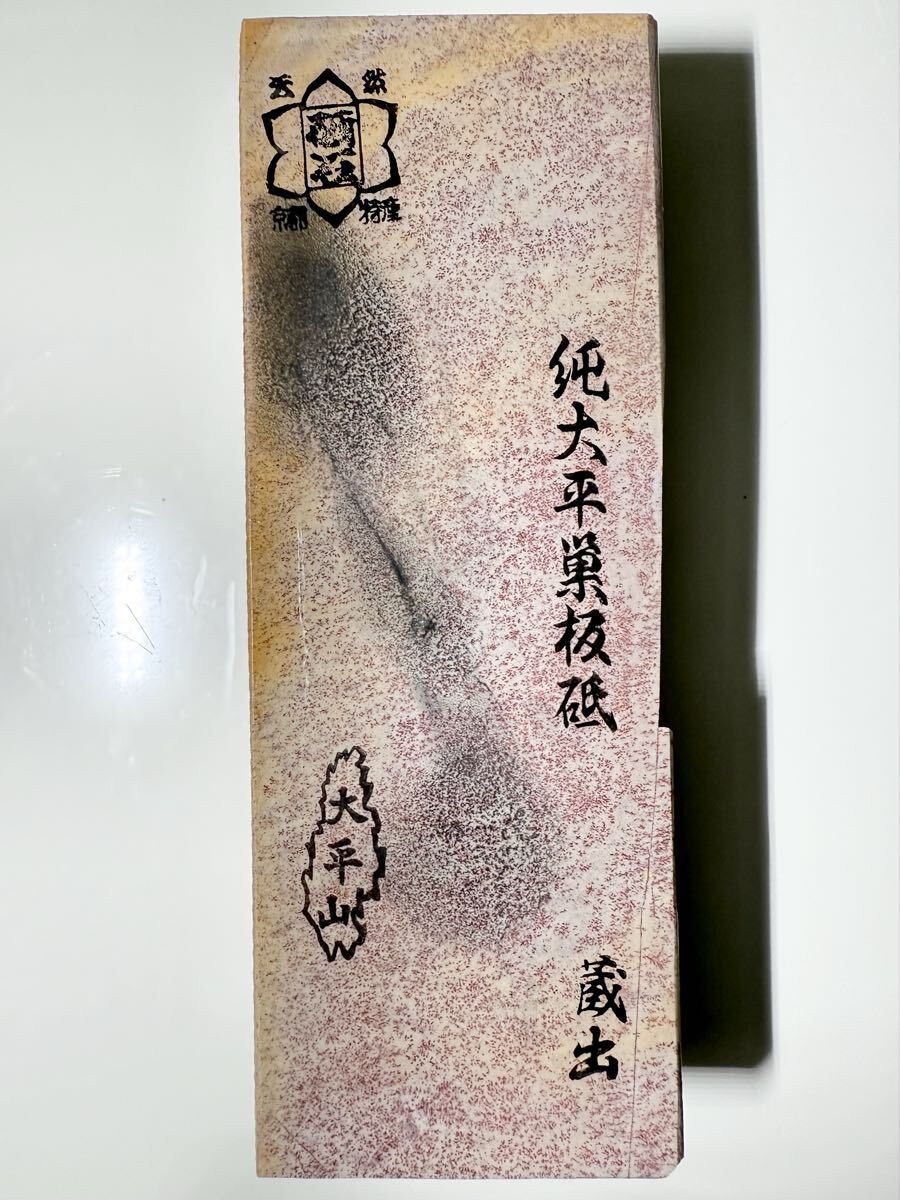 天然
砥石
京都 特産
純大平巣板砥
大平山
蔵出